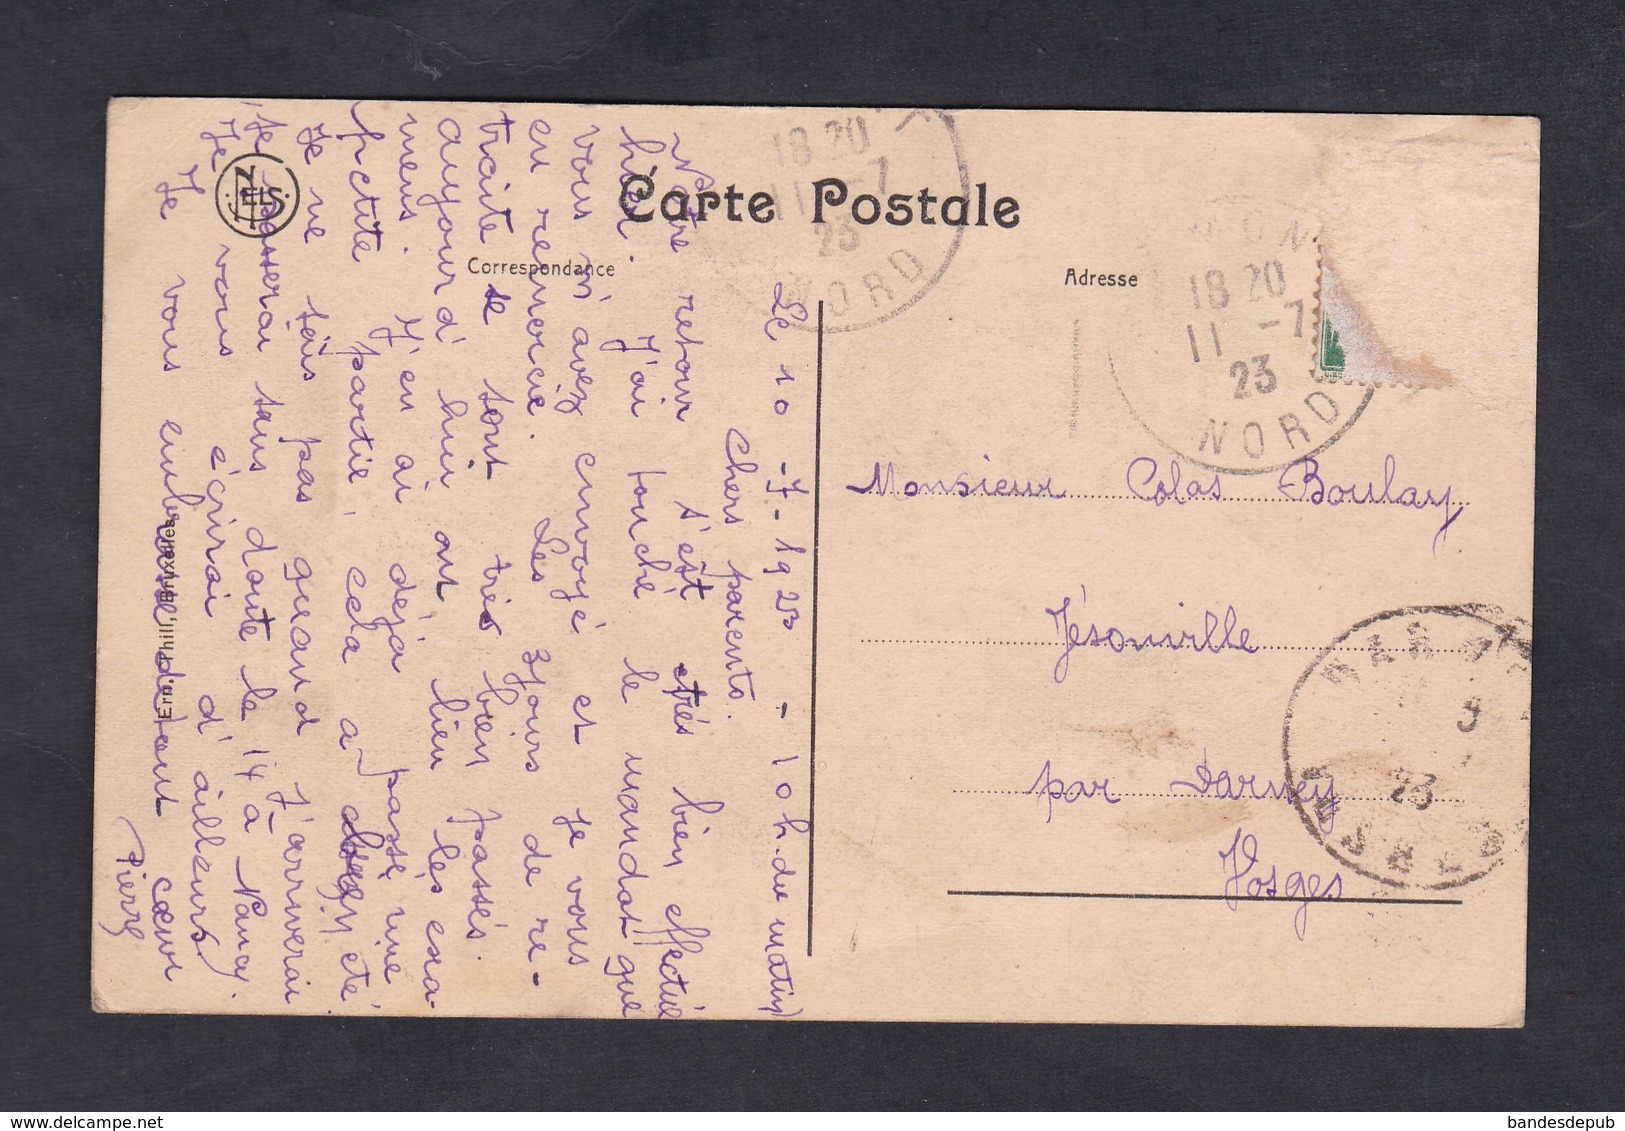 Carte Postale
Correspondance
Adresse
Le 10-7-1923 - 10 h. du matin)
Chers parents.
Notre retour s'est très bien effectué
hier. J'ai touché le mandat que
vous m'avez envoyé et je vous
en remercie. Les 3 jours de re-
traite se sont très bien passés.
aujourd'hui ont lieu les exa-
mens. J'en ai dejà passé une
petite partie, cela a été
Je ne sais pas quand j'arriverai
Je passerai sans doute le 14 à Nancy.
Je vous écrirai d'ailleurs
Je vous embrasse de tout cœur
Pierre
NELS
Ern. Thill, Bruxelles
Monsieur Colas Boulay
Jésonville
par Darney
Vosges
18 20
11 -7
23
NORD
18 20
11 -7
23
NORD
23
bandesdepub